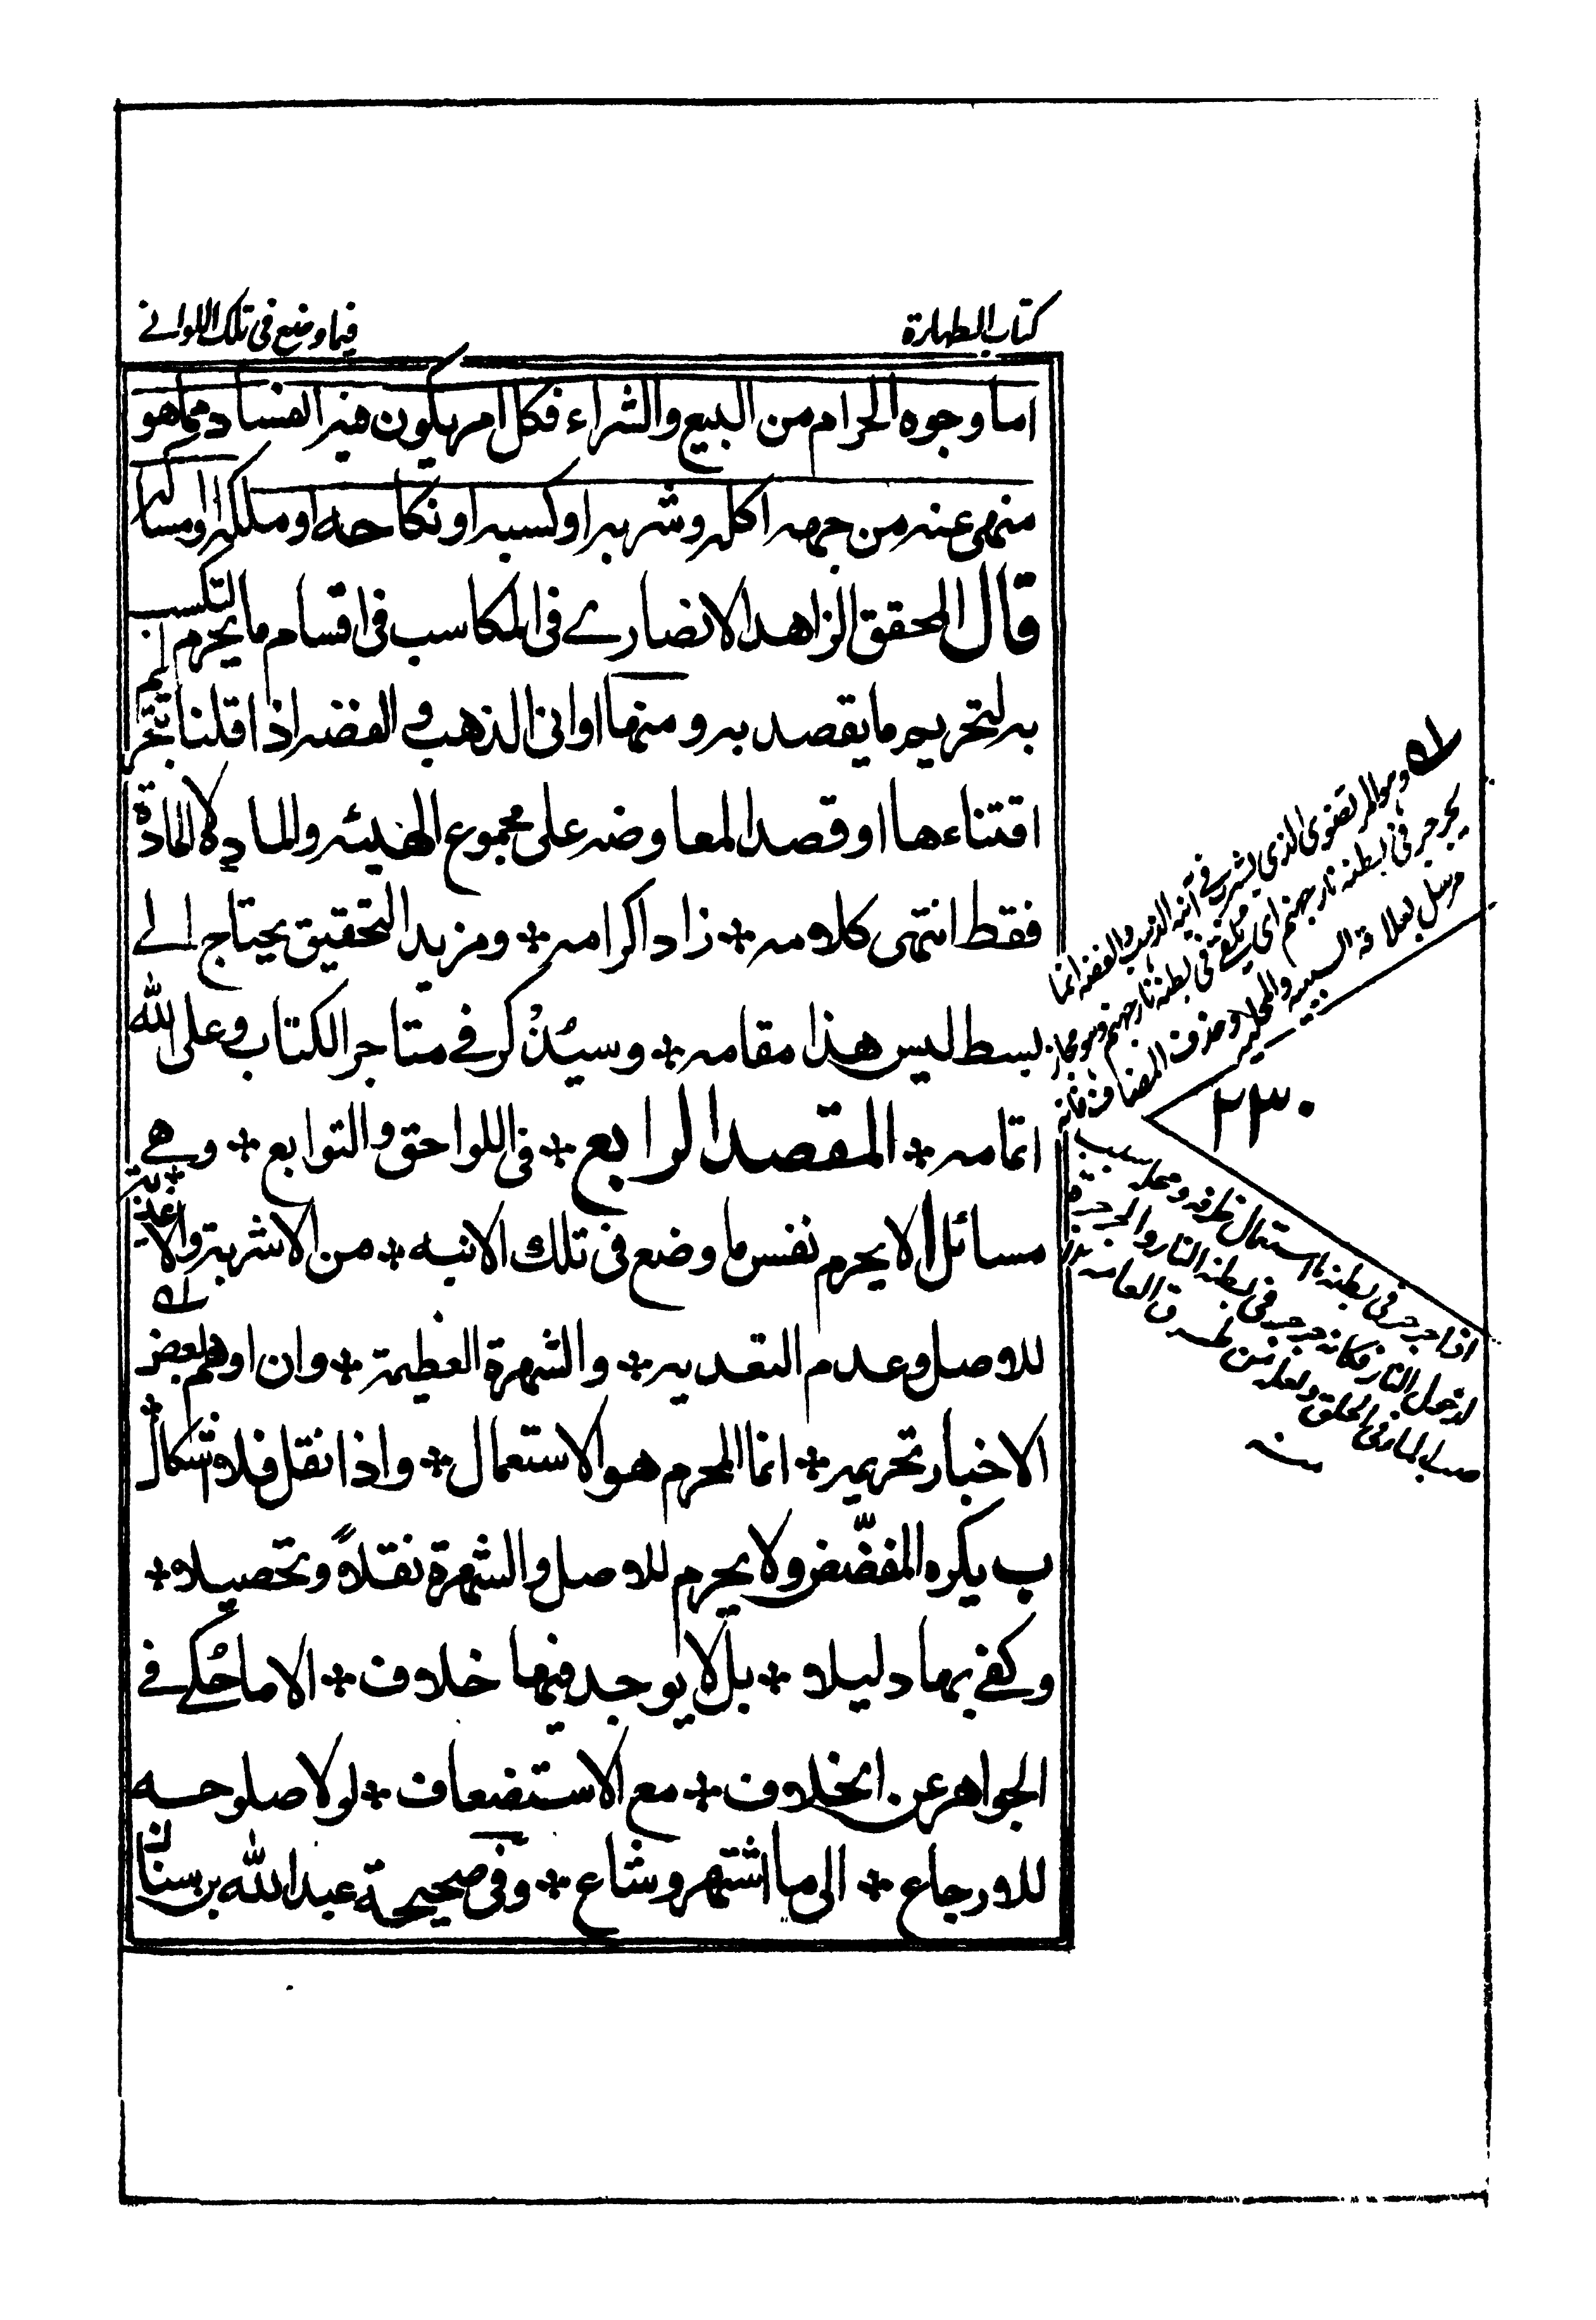 كتاب الطهارة
فيما وضع فى تلك الاوانے
اما وجوه الحرام من البيع والشراء فكل امر يكون فيه الفساد مما هو
منهى عنه من جهه اكله وشربه او كسبه او نكاحه او ملكه او امساكه
قال المحقق الزاهد الانصارے فى المكاسب فى اقسام ما يحرم التكسب
به لتحريم ما يقصد به ومنها اوانى الذهب و الفضه اذا قلنا بتحريم
اقتناءها او قصد المعاوضه على مجموع الهيئه والماده لا المادة
فقط انتهى كلامه * زاد اكرامه * ومزيد التحقيق يحتاج الے
بسط ليس هذا مقامه * وسيُذكر فے متاجر الكتاب وعلى الله
اتمامه * المقصد الرابع * فى اللواحق والتوابع * وهے
مسائل ا لا يحرم نفس ما وضع فى تلك الانيه * من الاشربة والاغذية *
للاصل وعدم التعديه * والشهرة العظيمة * وان اوهم بعض
الاخبار تحريمه * انما المحرم هو الاستعمال * واذا نقل فلا اشكال *
ب يكره المفضّض ولا يحرم للاصل والشهرة نقلاً وتحصيلا *
وكفے بها دليلا * بل لا يوجد فيها خلاف * الا ما حُكے فے
الجواهر عن الخلاف * مع الاستضعاف * لولا صلوحه
للارجاع * الى ما اشتهر وشاع * وفى صحيحة عبد الله بن سنان
وهو المرتضوى الذى يشرب فے آنية الذهب والفضه انما
يجرجر فى بطنه نار جهنم اى يلقے فى بطنه نار جهنم وهو مجاز
مرسل بعلاقة السببيه والمحليه وحذف المضاف فانه
٢٣٠
اذا جرجر فى بطنه ما استعمال ظرفه ومحله سبب
لدخول النار فكانه جرجر فى بطنه النار والجرجرة
صب الماء فى الحلق ولعله من طرق العامه
منه